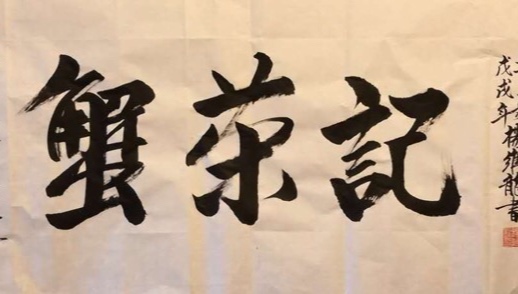 蟹荣記
戊戌年楊維龍書